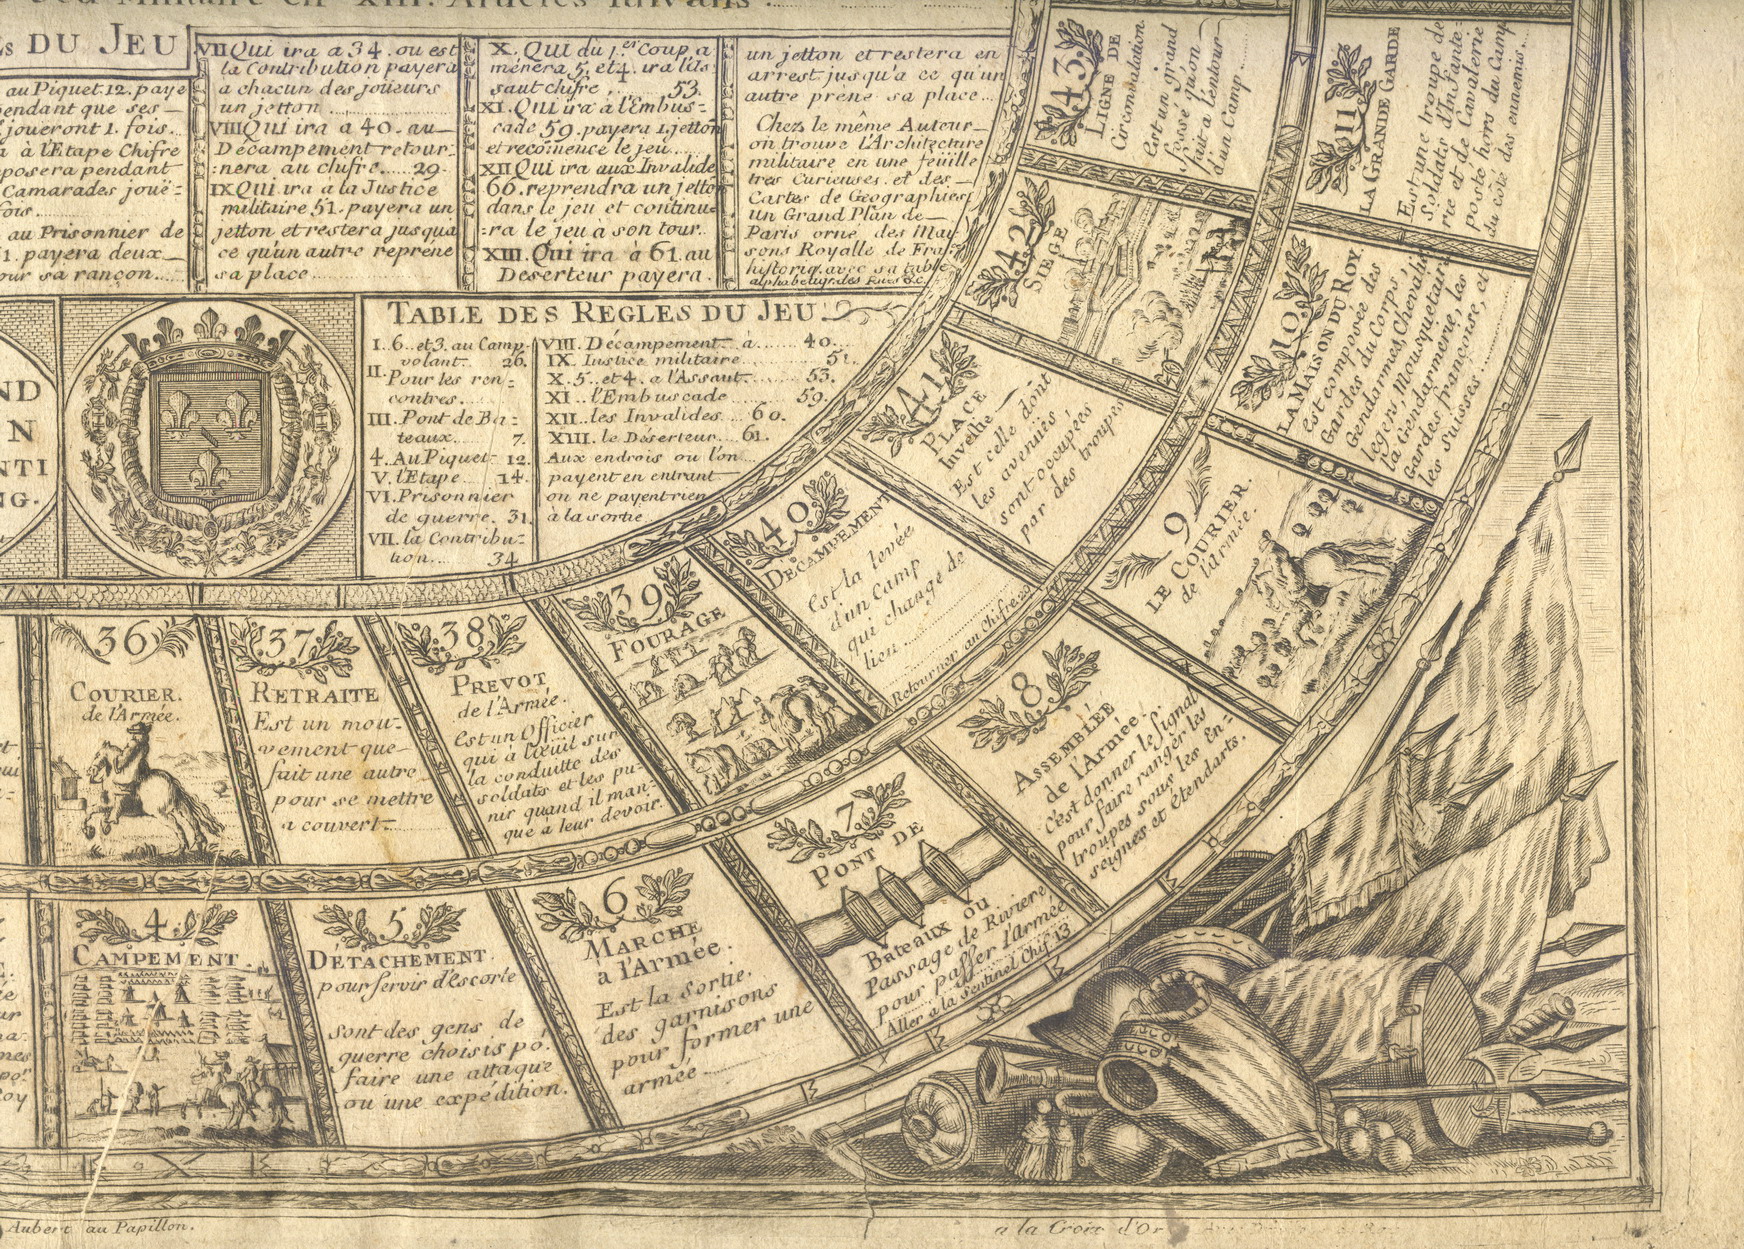 DU JEU
au Piquet.12. paye
endant que ses
joueront 1. fois.
a à l'Etape Chifre
poserа pendant
Camarades joue-
fois
au Prisonnier de
1. payera deux
our sa rançon....
VII Qui ira a 34. ou est
la Contribution payera
a chacun des joueurs
un jetton
VIII Qui ira a 40. au
Décampement retour:
:nera au chifre.....29.
IX Qui ira a la Justice
militaire 51. payera un
jetton et restera jusqua
ce qu'un autre reprène
sa place
X. Qui du 1.er Coup a
mènera 5. et 4. ira l'as
saut chifre ...... 53.
XI. Qui ira à l'Embus=
cade 59. payera 1. jetton
et recõmence le jeu
XII Qui ira aux Invalide
66. reprendra un jetton
dans le jeu et continue
:ra le jeu à son tour..
XIII. Qui ira à 61. au
Deserteur payera.
un jetton et restera en
arrest jusqu'a ce qu'un
autre prène sa place...
Chez le même Auteur
on trouve l'Architecture
militaire en une feüille
tres Curieuses. et des
Cartes de Geographies
un Grand Plan de
Paris orné des Mai
sons Royalle de Fra
historiq. avec sa table
alphabetiq. des Rues &c.
ND
N
NTI
NG.
TABLE DES REGLES DU JEU
I..6..et3. au Camp
volant. 26.
II. Pour les ren-
contres.
III. Pont de Ba-
teaux...... 7.
4. Au Piquet. 12.
V. l'Etape .... 14.
VI. Prisonnier
de guerre. 31.
VII. la Contribu-
tion.... 34
VIII. Décampement à .... 40...
IX. Justice militaire..... 51.
X. 5. et 4. a l'Assaut....... 53.
XI. l'Embuscade ........ 59.
XII. les Invalides... 60.
XIII. le Déserteur.. 61.
Aux endrois ou l'on
payent en entrant
on ne payent rien
à la sortie.
43
LIGNE DE
Circonvalation.
Est un grand
fossé qu'on
fait à l'entour
d'un Camp
42
SIEGE
41
PLACE
Investie
Est celle dont
les avenuës
sont occupées
par des troupes
40
DÉCAMPEMENT
est la levée
d'un camp
qui change de
lieu
Retourner au chifre 29
39
FOURAGE
38
PREVOT
de l'Armée.
est un Officier
qui à l'œuil sur
la conduitte des
soldats et les pu-
nir quand il man-
que a leur devoir.
37
RETRAITE
Est un mou-
vement que
fait une autre
pour se mettre
a couvert
36
COURIER.
de l'Armée.
11
LA GRANDE GARDE
Est une troupe de
Soldats d'Infante-
rie et de Cavalerie
posté hors du Camp
du côté des ennemis.
10
LA MAISON DU ROY.
est composée des
Gardes du Corps
Gendarmes, Chevaux
légers, Mousquetaires
la Gendarmerie, les
Gardes françoise, et
les Suisses
9
LE COURIER.
de l'Armée.
8
ASSEMBLÉE
de l'Armée.
c'est donner le signal
pour faire ranger les
troupes sous les En-
seignes et étendarts.
7
PONT DE
Bateaux ou
Passage de Riviere
pour passer l'Armée
Aller a la Sentinel Chif. 13.
6
MARCHE
a l'Armée.
Est la sortie.
des garnisons
pour former une
armée
5
DÉTACHEMENT.
pour servir d'escorte
sont des gens de
guerre choisis po.
faire une attaque
ou une expédition.
4
CAMPEMENT.
Aubert au Papillon.
a la Croix d'Or